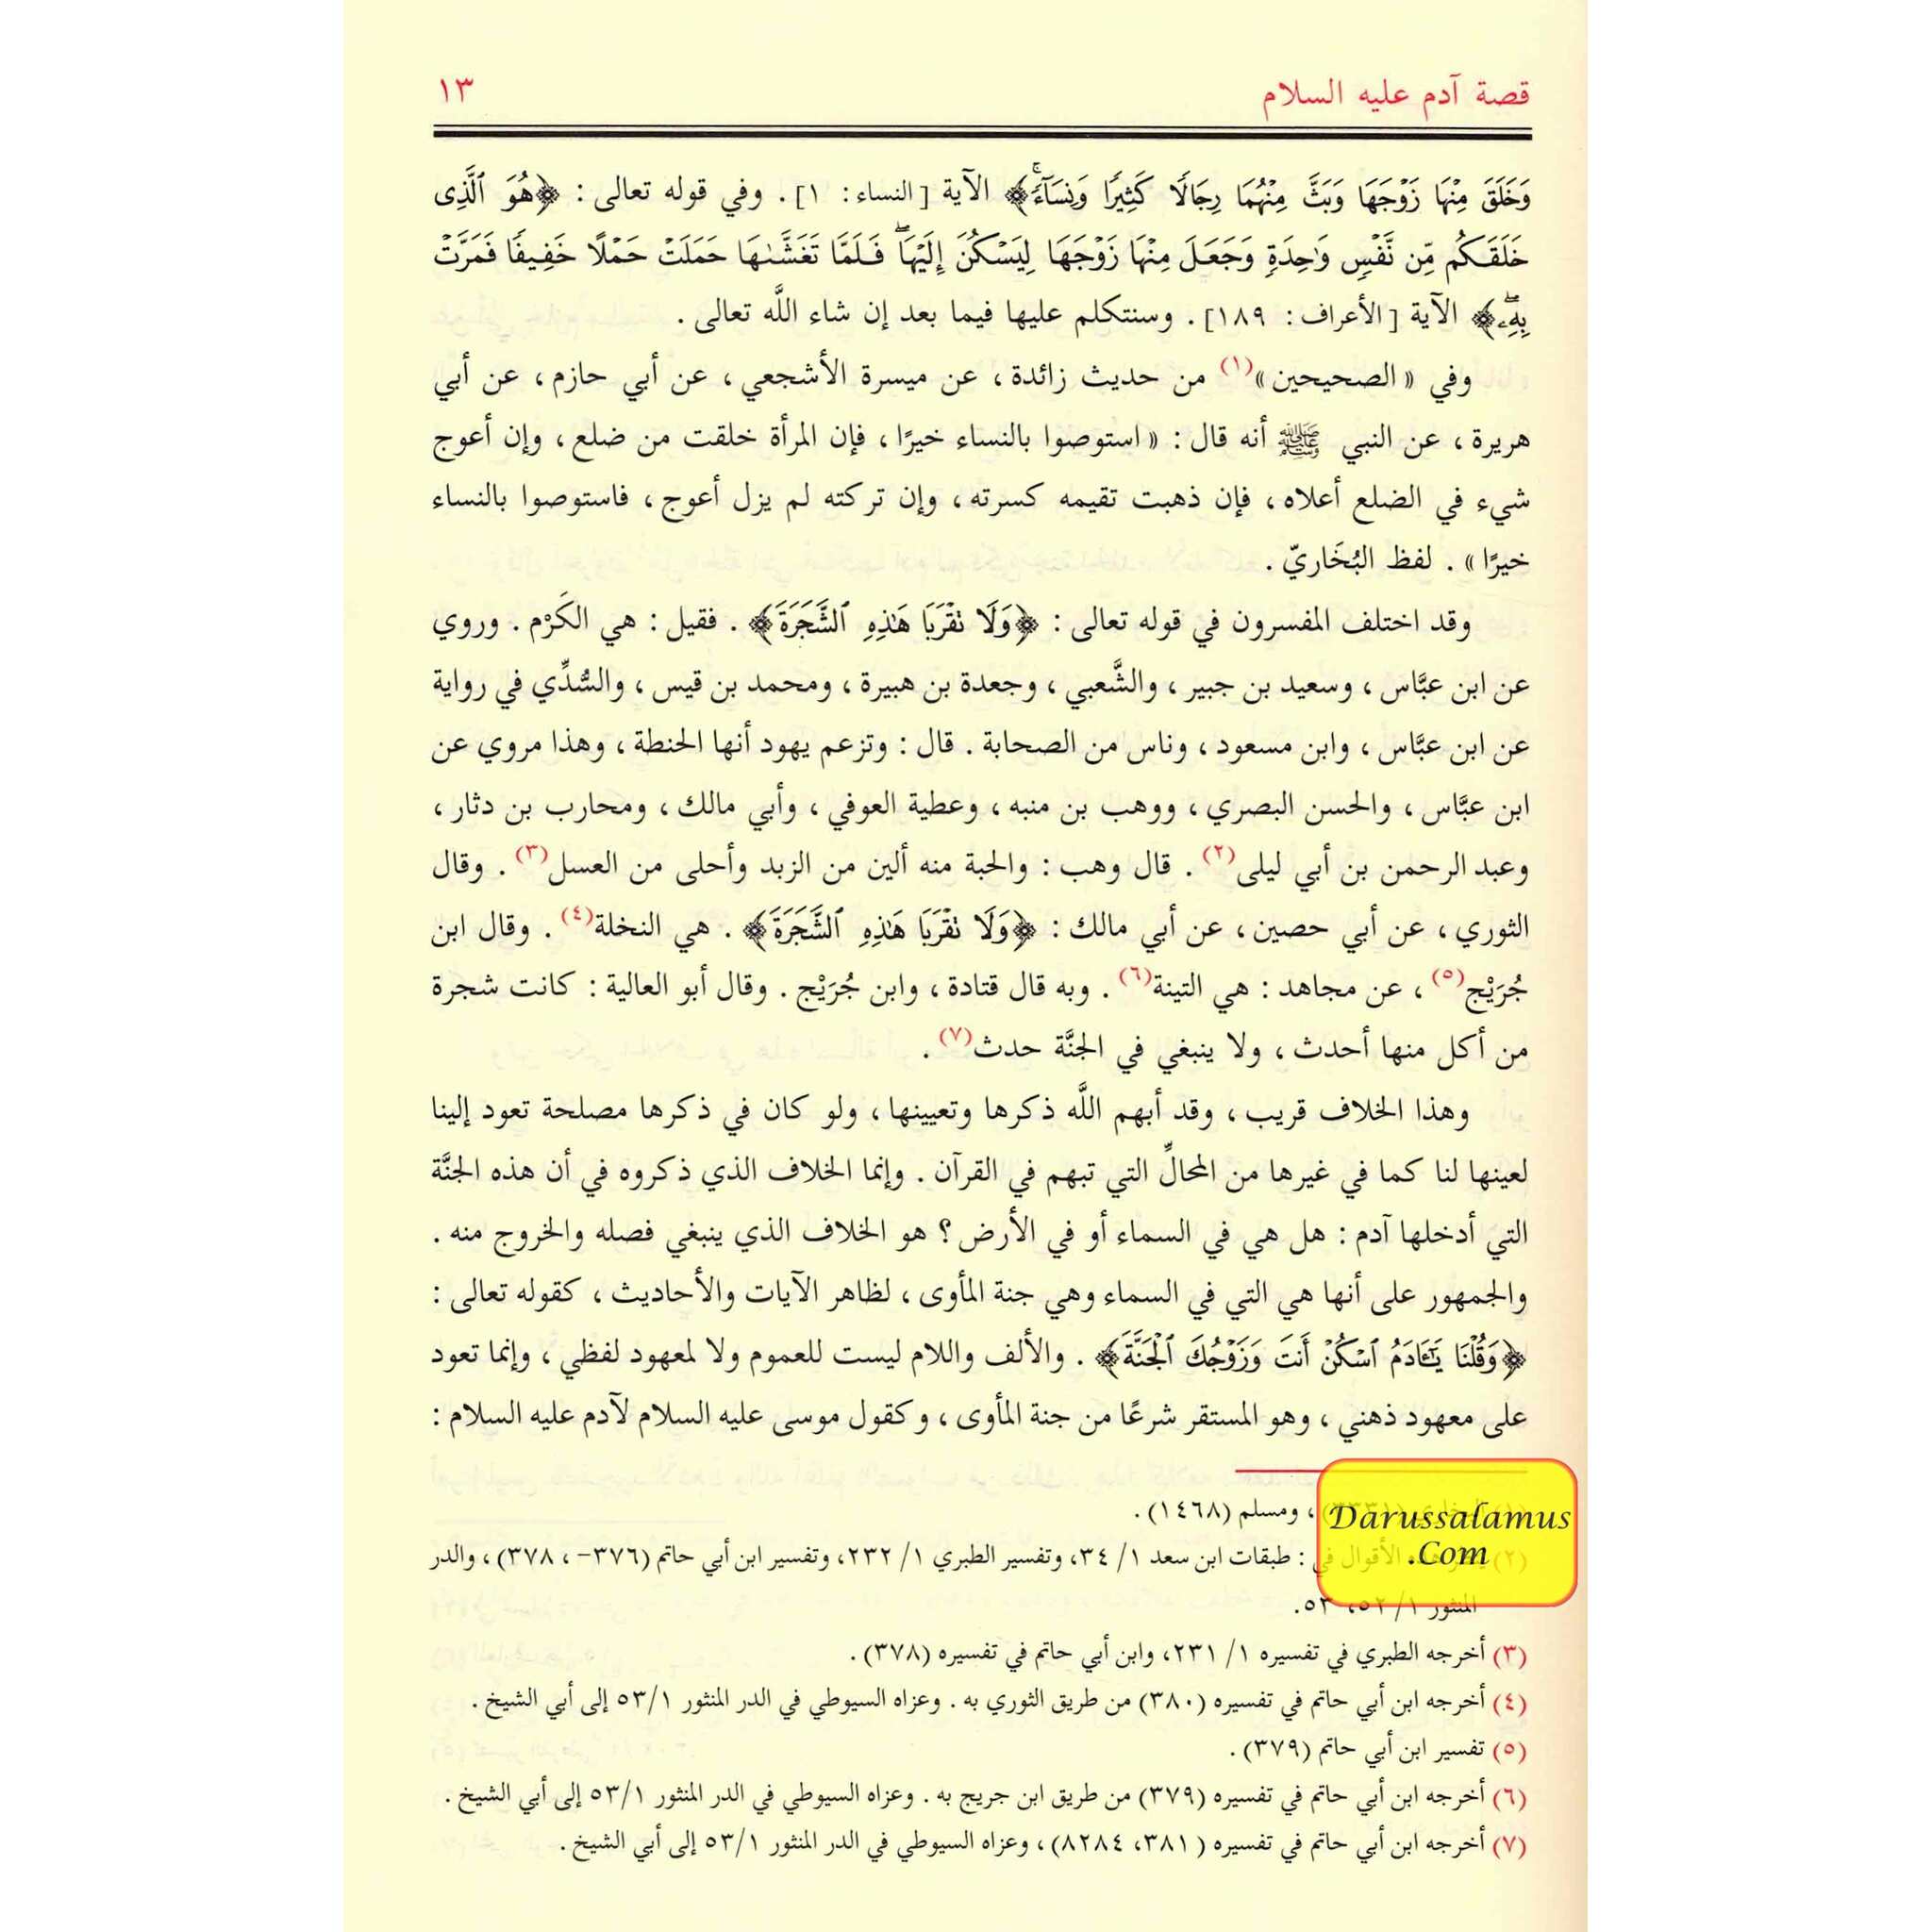 قصة آدم عليه السلام ١٣
وَخَلَقَ مِنْهَا زَوْجَهَا وَبَثَّ مِنْهُمَا رِجَالًا كَثِيرًا وَنِسَآءً﴾ الآية [النساء: ١]. وفي قوله تعالى: ﴿هُوَ ٱلَّذِى
خَلَقَكُم مِّن نَّفْسٍ وَٰحِدَةٍ وَجَعَلَ مِنْهَا زَوْجَهَا لِيَسْكُنَ إِلَيْهَا ۖ فَلَمَّا تَغَشَّىٰهَا حَمَلَتْ حَمْلًا خَفِيفًا فَمَرَّتْ
بِهِۦ ۖ﴾ الآية [الأعراف: ١٨٩]. وسنتكلم عليها فيما بعد إن شاء اللَّه تعالى.
وفي «الصحيحين»(١) من حديث زائدة، عن ميسرة الأشجعي، عن أبي حازم، عن أبي
هريرة، عن النبي ﷺ أنه قال: «استوصوا بالنساء خيرًا، فإن المرأة خلقت من ضلع، وإن أعوج
شيء في الضلع أعلاه، فإن ذهبت تقيمه كسرته، وإن تركته لم يزل أعوج، فاستوصوا بالنساء
خيرًا». لفظ البُخَاريّ.
وقد اختلف المفسرون في قوله تعالى: ﴿وَلَا تَقْرَبَا هَٰذِهِ ٱلشَّجَرَةَ﴾. فقيل: هي الكَرْم. وروي
عن ابن عبَّاس، وسعيد بن جبير، والشَّعبي، وجعدة بن هبيرة، ومحمد بن قيس، والسُّدِّي في رواية
عن ابن عبَّاس، وابن مسعود، وناس من الصحابة. قال: وتزعم يهود أنها الحنطة، وهذا مروي عن
ابن عبَّاس، والحسن البصري، ووهب بن منبه، وعطية العوفي، وأبي مالك، ومحارب بن دثار،
وعبد الرحمن بن أبي ليلى(٢). قال وهب: والحبة منه ألين من الزبد وأحلى من العسل(٣). وقال
الثوري، عن أبي حصين، عن أبي مالك: ﴿وَلَا تَقْرَبَا هَٰذِهِ ٱلشَّجَرَةَ﴾. هي النخلة(٤). وقال ابن
جُرَيْج(٥)، عن مجاهد: هي التينة(٦). وبه قال قتادة، وابن جُرَيْج. وقال أبو العالية: كانت شجرة
من أكل منها أحدث، ولا ينبغي في الجنَّة حدث(٧).
وهذا الخلاف قريب، وقد أبهم اللَّه ذكرها وتعيينها، ولو كان في ذكرها مصلحة تعود إلينا
لعينها لنا كما في غيرها من المحالِّ التي تبهم في القرآن. وإنما الخلاف الذي ذكروه في أن هذه الجنَّة
التي أدخلها آدم: هل هي في السماء أو في الأرض؟ هو الخلاف الذي ينبغي فصله والخروج منه.
والجمهور على أنها هي التي في السماء وهي جنة المأوى، لظاهر الآيات والأحاديث، كقوله تعالى:
﴿وَقُلْنَا يَٰٓـَٔادَمُ ٱسْكُنْ أَنتَ وَزَوْجُكَ ٱلْجَنَّةَ﴾. والألف واللام ليست للعموم ولا لمعهود لفظي، وإنما تعود
على معهود ذهني، وهو المستقر شرعًا من جنة المأوى، وكقول موسى عليه السلام لآدم عليه السلام:
(١) ، ومسلم (١٤٦٨).
(٢) الأقوال في: طبقات ابن سعد ١/ ٣٤، وتفسير الطبري ١/ ٢٣٢، وتفسير ابن أبي حاتم (٣٧٦-، ٣٧٨)، والدر
المنثور ١/ ٥٢، ٥٣.
(٣) أخرجه الطبري في تفسيره ١/ ٢٣١، وابن أبي حاتم في تفسيره (٣٧٨).
(٤) أخرجه ابن أبي حاتم في تفسيره (٣٨٠) من طريق الثوري به. وعزاه السيوطي في الدر المنثور ٥٣/١ إلى أبي الشيخ.
(٥) تفسير ابن أبي حاتم (٣٧٩).
(٦) أخرجه ابن أبي حاتم في تفسيره (٣٧٩) من طريق ابن جريج به. وعزاه السيوطي في الدر المنثور ٥٣/١ إلى أبي الشيخ.
(٧) أخرجه ابن أبي حاتم في تفسيره (٣٨١، ٨٢٨٤)، وعزاه السيوطي في الدر المنثور ٥٣/١ إلى أبي الشيخ.
Darussalamus
.Com